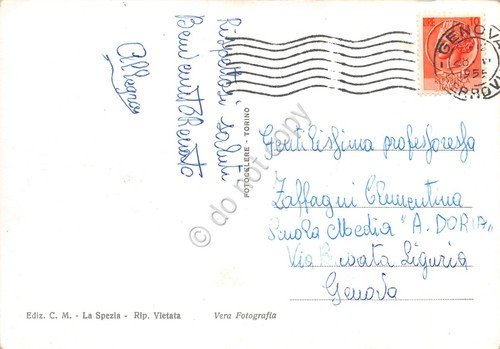 Rispettosi saluti
Benvenuto
Allegro
FOTOCELERE - TORINO
GENOVA
FERROVIA
LIRE 10
Gentilissima professoressa
Zaffagni Clementina
Scuola Media "A. DORIA"
Via Privata Liguria
Genova
Ediz. C. M. - La Spezia - Rip. Vietata
Vera Fotografia
© do not copy